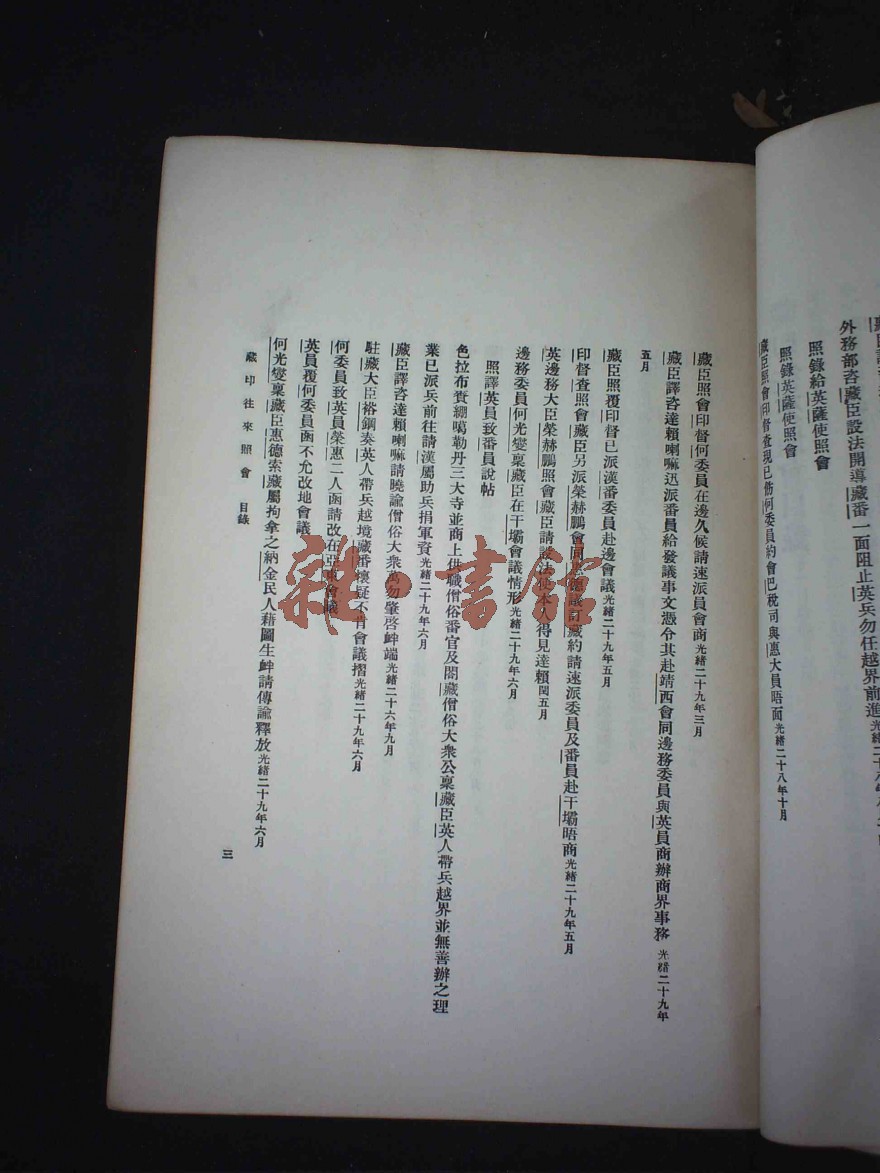 外務部咨藏臣設法開導藏番一面阻止英兵勿任越界前進
照錄給英薩使照會
照錄英薩使照會
藏臣照會印督查現已飭何委員約會巴稅司與惠大員晤面光緒二十八年十月
藏臣照會印督何委員在邊久候請速派員會商光緒二十九年三月
藏臣譯咨達賴喇嘛迅派番員給發議事文憑令其赴靖西會同邊務委員與英員商辦商界事務光緒二十九年
五月
藏臣照覆印督已派漢番委員赴邊會議光緒二十九年五月
印督查照會藏臣另派榮赫鵬會同惠德議訂藏約請速派委員及番員赴干壩晤商光緒二十九年五月
英邊務大臣榮赫鵬照會藏臣請設法使本人得見達賴閏五月
邊務委員何光燮稟藏臣在干壩會議情形光緒二十九年六月
照譯英員致番員說帖
色拉布賚綳噶勒丹三大寺並商上供職僧俗番官及閤藏僧俗大衆公稟藏臣英人帶兵越界並無善辦之理
業已派兵前往請漢屬助兵捐軍資光緒二十九年六月
藏臣譯咨達賴喇嘛請曉諭僧俗大衆萬勿肇啓衅端光緒二十六年九月
駐藏大臣裕鋼奏英人帶兵越境藏番懷疑不肯會議摺光緒二十九年六月
何委員致英員榮惠二人函請改在亞東會議
英員覆何委員函不允改地會議
何光燮稟藏臣惠德索藏屬拘拿之納金民人藉圖生衅請傳諭釋放光緒二十九年六月
藏印往來照會 目錄
三
雜·書館